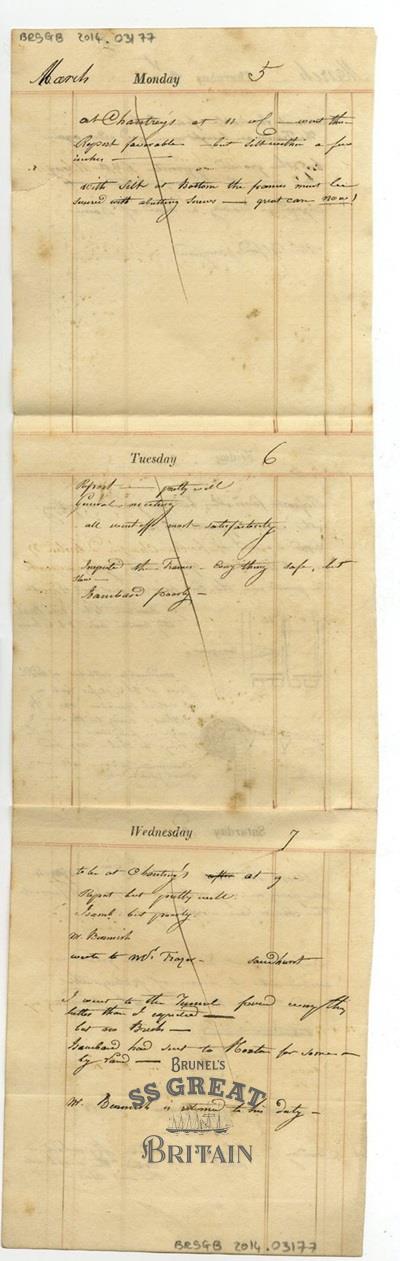 BRSGB 2014.03177
March Monday 5
at Chantrey's at 11 - went thro
Report favorable - but silt within a few
inches -
with silt at Bottom the frames must be
secured with abutting screws - great care now!
Tuesday 6
Report - pretty well
General meeting
all went off most satisfactorily
Inspected the Frames - every thing safe, but
slow -
Isambard poorly -
Wednesday 7
to be at Chantrey's after at 9 -
Report but pretty well.
Isamb. but poorly
Mr. Beamish
wrote to Mrs. Frazer - Sandhurst
I went to the Tunnel found every thing
better than I expected -
but no Bricks -
Isambard had sent to for some
by Land -
Mr. Beamish is returned to his duty -
BRUNEL'S
SS GREAT
BRITAIN
BRSGB 2014.03177